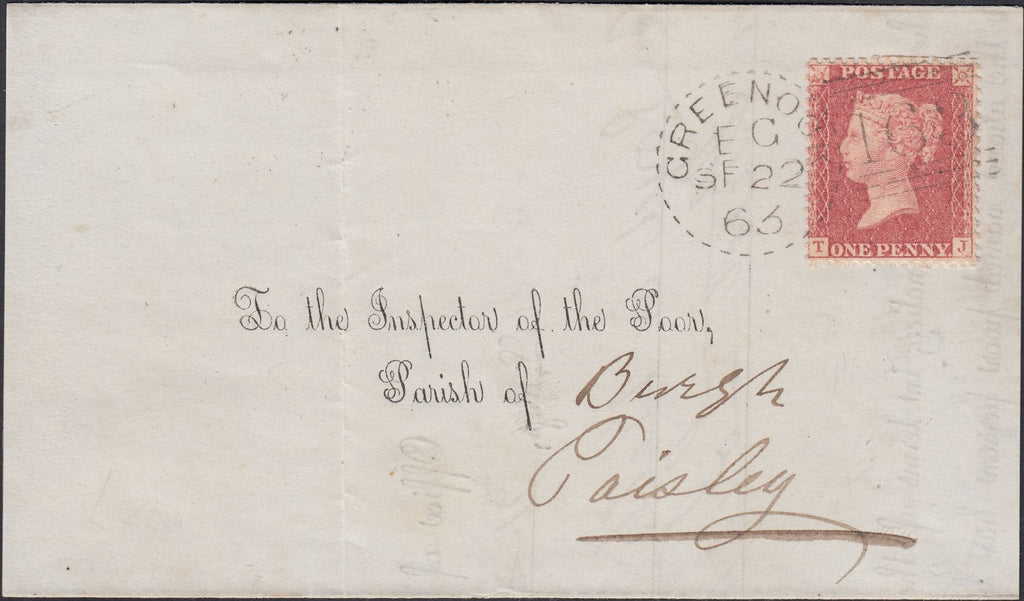 POSTAGE
GREENO
E G
SE 22
63
16
T ONE PENNY J
To the Inspector of the Poor,
Parish of Burgh
Paisley